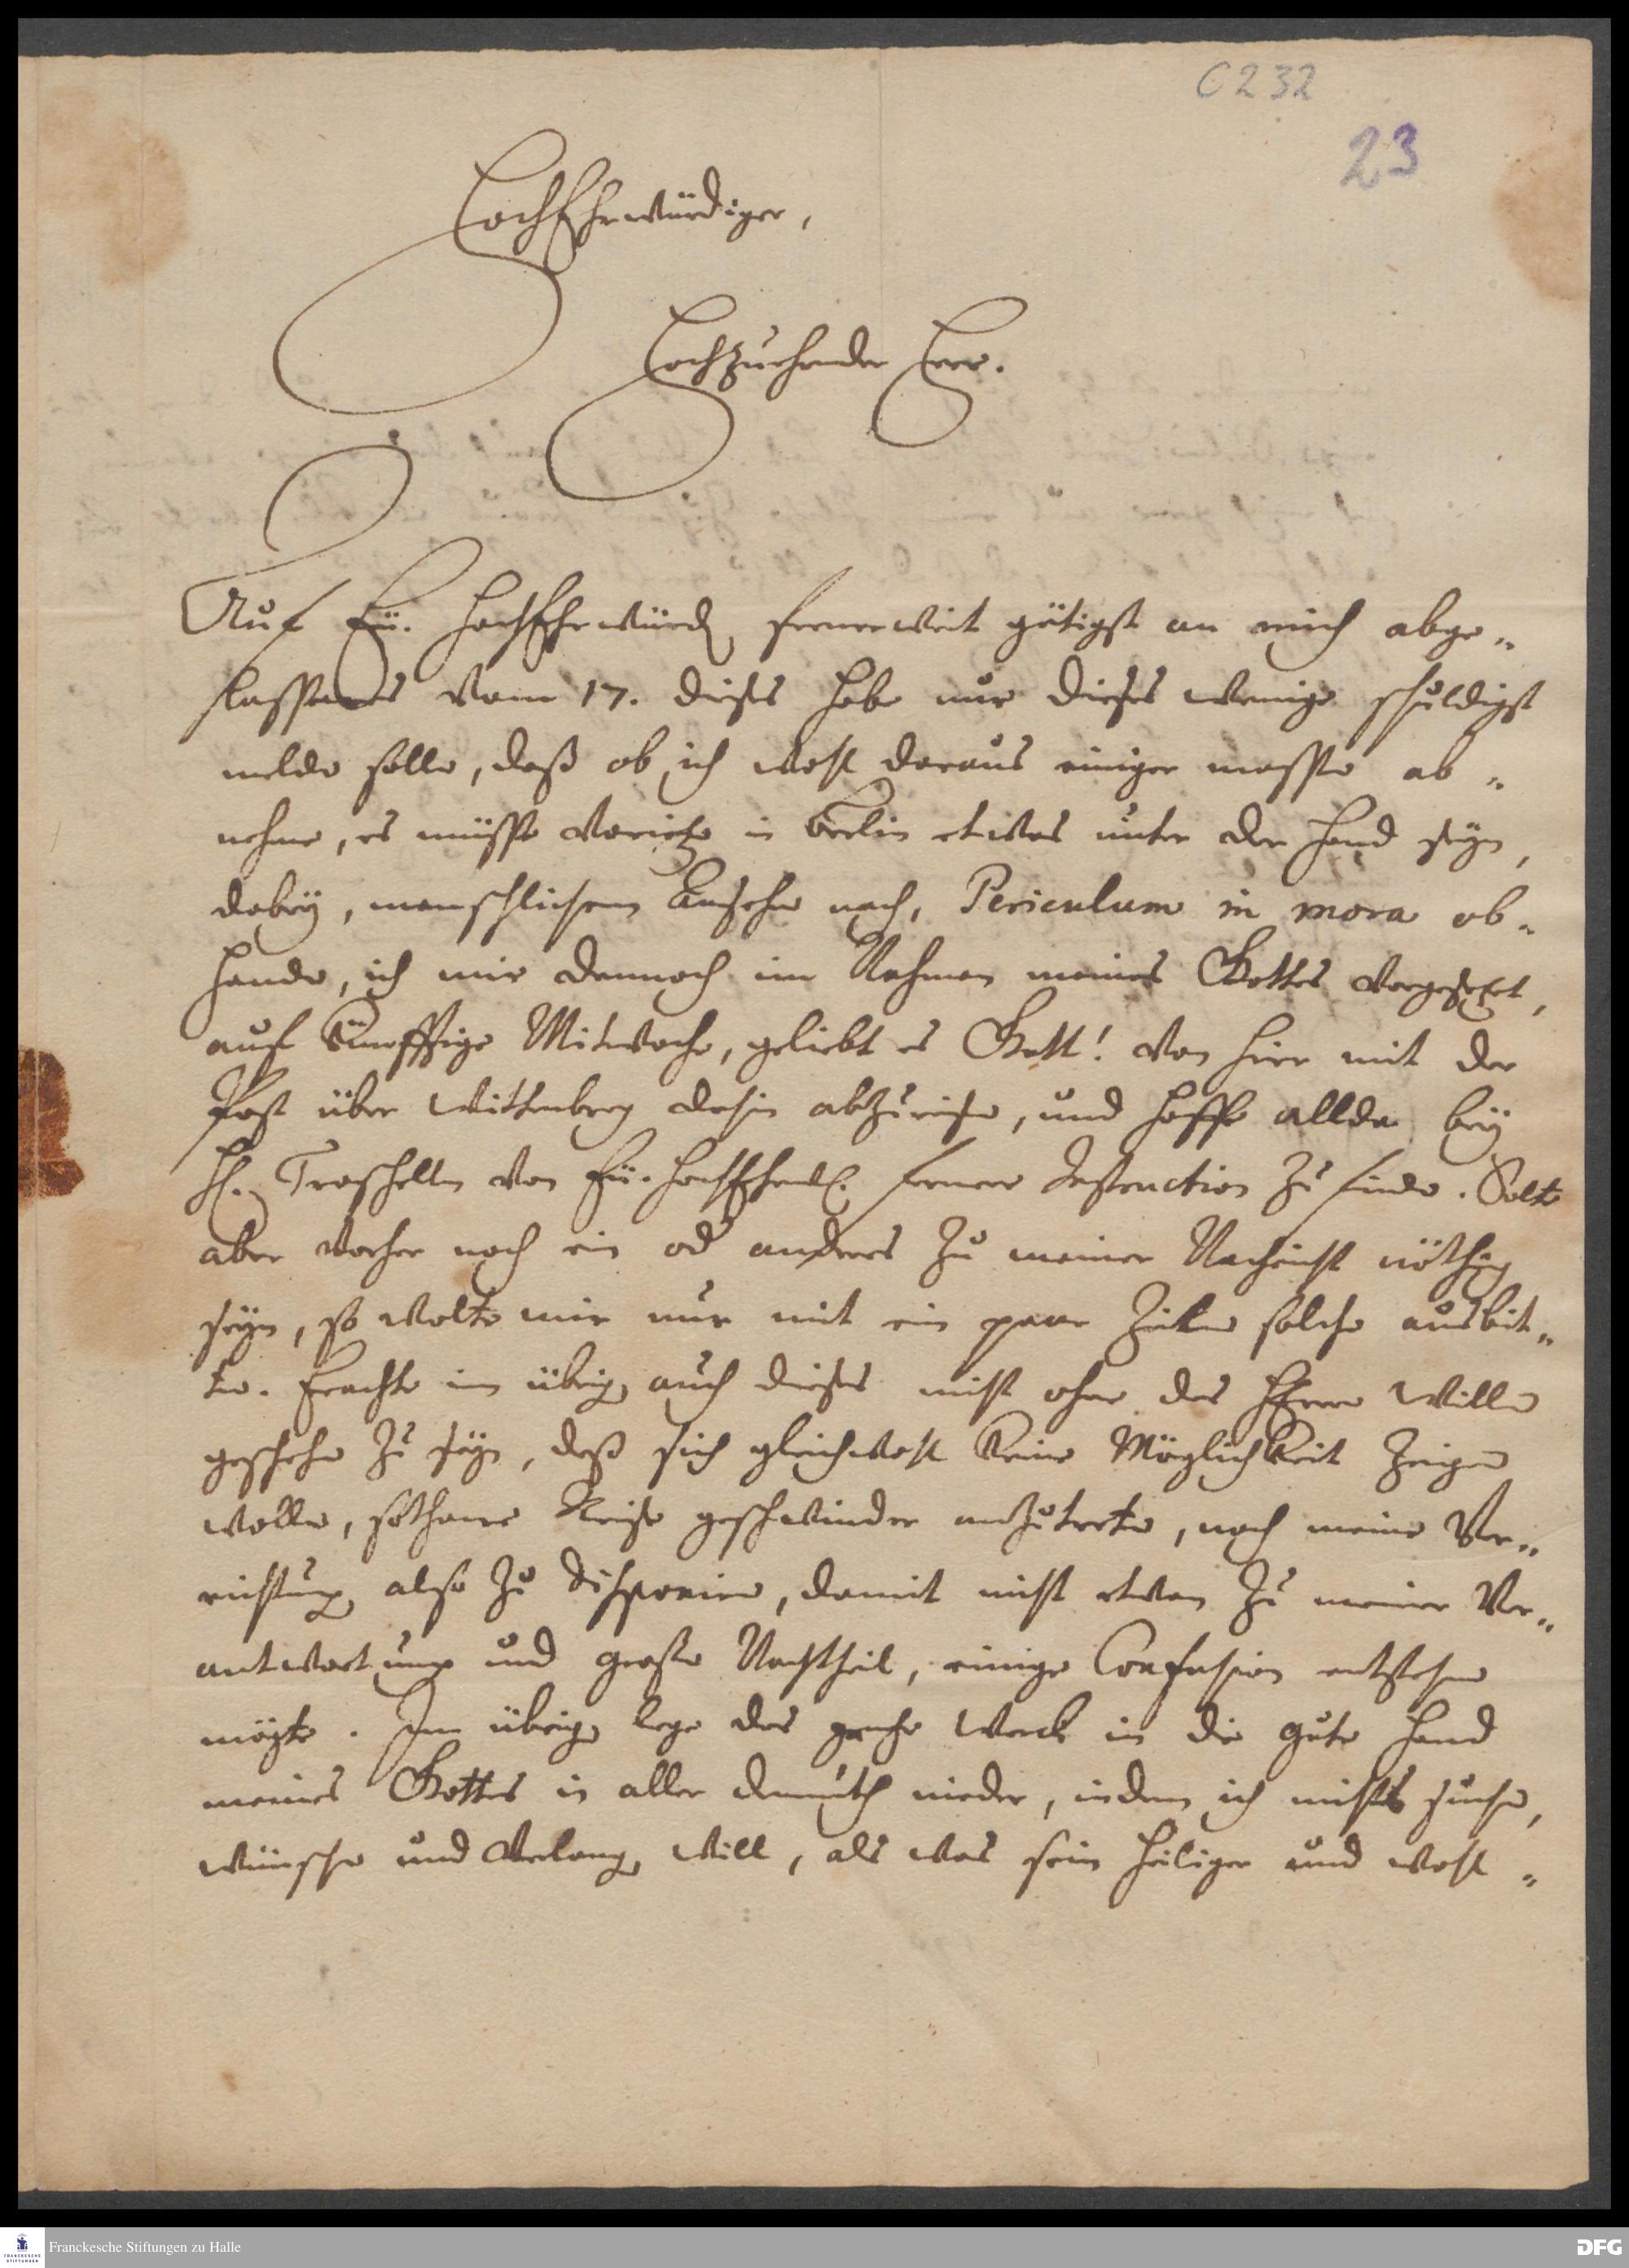 C 232
23
HochEhrwürdiger,
Hochzuehrender Herr.
Auf Eu. HochEhrwürd. fernerweit gütigst an mich abge„
lassenes vom 17. dieses habe nur dieses wenige schuldigst
melden sollen, daß ob ich wohl daraus einiger massen ab„
nehme, es müsse vorietzo in Berlin etwas unter der Hand seyn,
dabey, menschlichem Ansehen nach, Periculum in mora ob„
handen, ich mir dennoch im Nahmen meines Gottes vorgesetzt,
auf künfftige Mitwoche, geliebt es Gott! von hier mit der
Post über Wittenberg dahin abzureisen, und hoffe allda bey
H. Troschelln von Eu. HochEhrw. ferner Instruction zu finden. Solte
aber vorher noch ein od. anders zu meiner Nachricht nöthig
seyn, so wolte mir nur mit ein paar Zeilen solches ausbit„
ten. Erachte im übrigen auch dieses nicht ohne des HErrn Willen
geschehen zu seyn, daß sich gleichwohl keine Möglichkeit zeigen
wollen, sothane Reise geschwinder anzutreten, noch meine Ver„
richtung also zu disponiren, damit nicht etwan zu meiner Ver„
antwortung und grossen Nachtheil, einige Confusion entstehen
mögte. Im übrigen lege das gantze Werck in die gute Hand
meines Gottes in aller demuth nieder, indem ich nichts suchen,
wünschen und verlangen will, als was sein heiliger und wohl„
Franckesche Stiftungen zu Halle
FRANCKESCHE
STIFTUNGEN
DFG